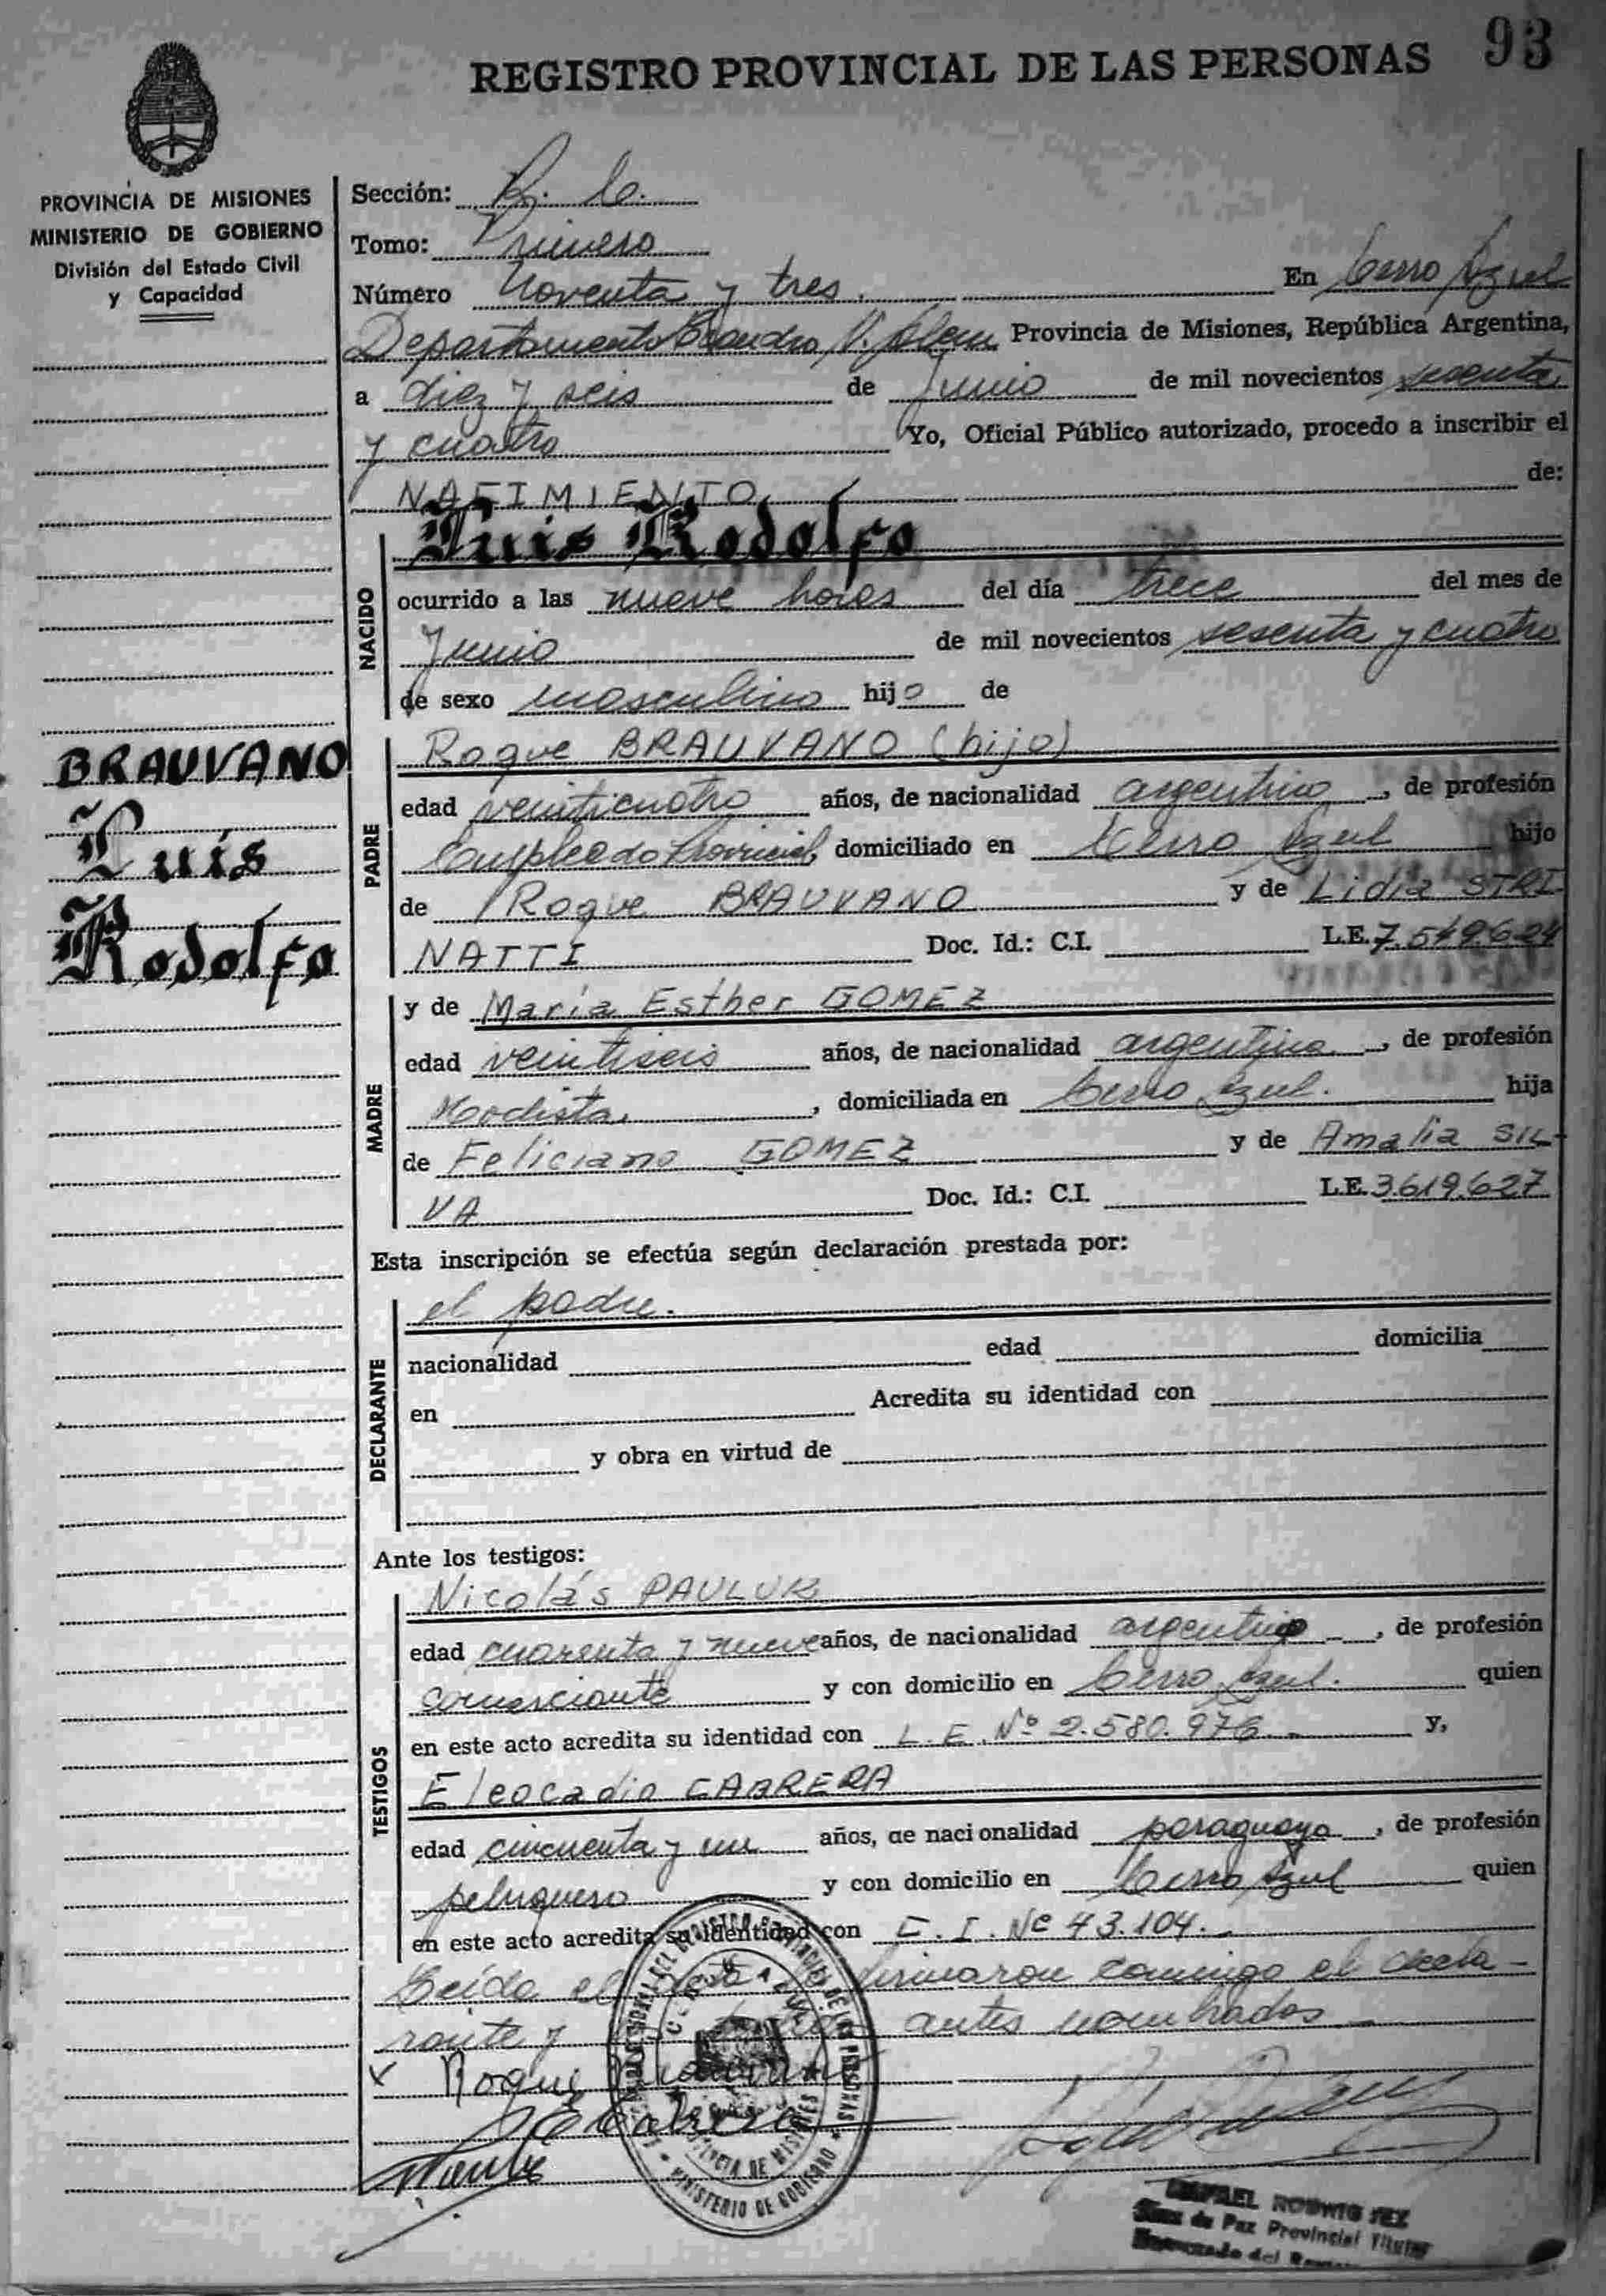 93
REGISTRO PROVINCIAL DE LAS PERSONAS
PROVINCIA DE MISIONES
MINISTERIO DE GOBIERNO
División del Estado Civil
y Capacidad
Sección:
Tomo: Primero
Número Noventa y tres. En Cerro Azul
Departamento Leandro N. Alem Provincia de Misiones, República Argentina,
a diez y seis de Junio de mil novecientos sesenta
y cuatro Yo, Oficial Público autorizado, procedo a inscribir el
NACIMIENTO de:
NACIDO
Luis Rodolfo
ocurrido a las nueve horas del día trece del mes de
Junio de mil novecientos sesenta y cuatro
de sexo masculino hijo de
BRAUVANO
Luís
Rodolfo
PADRE
Roque BRAUVANO (hijo)
edad veinticuatro años, de nacionalidad argentino, de profesión
Empleado Provincial, domiciliado en Cerro Azul hijo
de Roque BRAUVANO y de Lidia STRI
NATTI Doc. Id.: C.I. L.E. 7.549.624
MADRE
y de María Esther GOMEZ
edad veintiseis años, de nacionalidad argentina, de profesión
Modista, domiciliada en Cerro Azul. hija
de Feliciano GOMEZ y de Amalia SIL-
VA Doc. Id.: C.I. L.E. 3.619.627
Esta inscripción se efectúa según declaración prestada por:
DECLARANTE
el padre.
nacionalidad edad domicilia
en Acredita su identidad con
y obra en virtud de
Ante los testigos:
TESTIGOS
Nicolás PAULUK
edad cuarenta y nueve años, de nacionalidad argentino, de profesión
comerciante y con domicilio en Cerro Azul. quien
en este acto acredita su identidad con L.E. Nº 2.580.976 y,
Eleocadio CABRERA
edad cincuenta y un años, de nacionalidad paraguayo, de profesión
peluquero y con domicilio en Cerro Azul quien
en este acto acredita su identidad con C.I. Nº 43.104.
Leída el acta firmaron conmigo el decla-
rante y antes nombrados
x Roque Brauvano
Cabrera
MINISTERIO DE GOBIERNO
Juez de Paz Provincial Titular